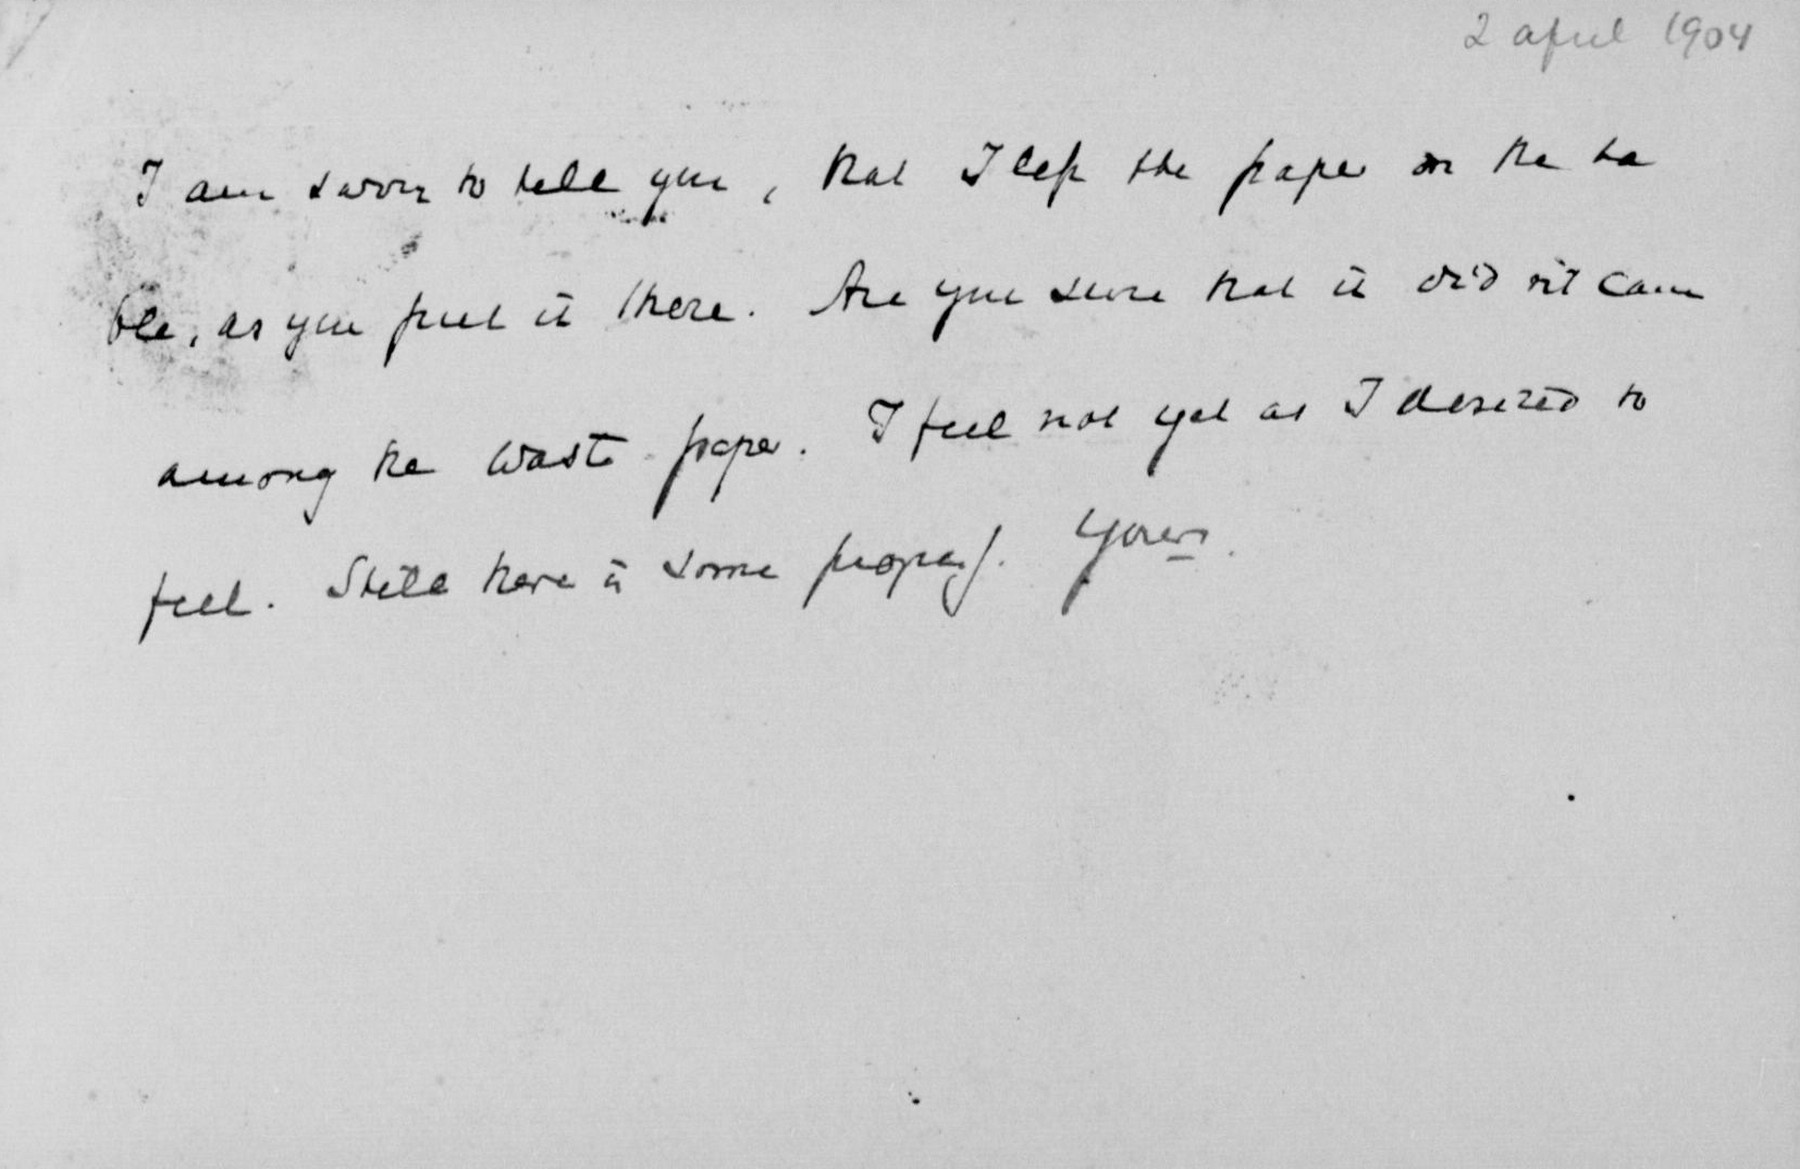 2 april 1904
I am sorry to tell you, that I left the paper on the ta
ble, as you put it there. Are you sure that it did nit came
among the waste paper. I feel not yet as I desired to
feel. Still there is some progress. Yours.